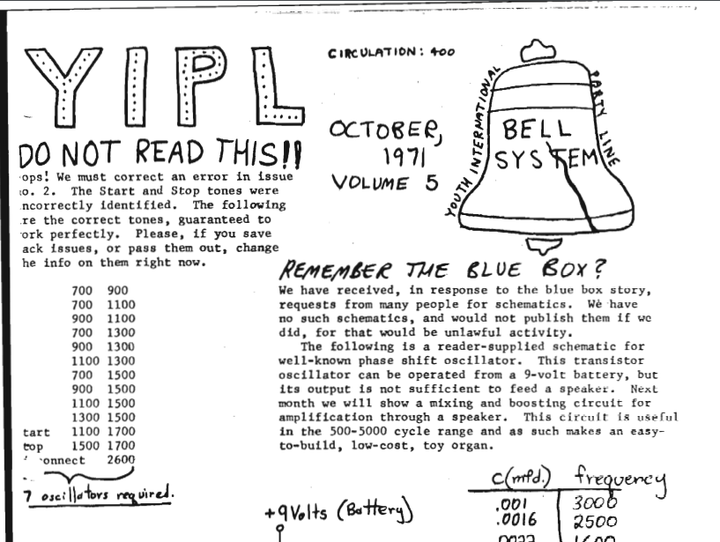 YIPL
CIRCULATION: 400
OCTOBER,
1971
VOLUME 5
YOUTH INTERNATIONAL
PARTY LINE
BELL
SYSTEM
DO NOT READ THIS!!
ops! We must correct an error in issue
o. 2. The Start and Stop tones were
ncorrectly identified. The following
re the correct tones, guaranteed to
ork perfectly. Please, if you save
ack issues, or pass them out, change
he info on them right now.
700 900
700 1100
900 1100
700 1300
900 1300
1100 1300
700 1500
900 1500
1100 1500
1300 1500
tart 1100 1700
top 1500 1700
onnect 2600
7 oscillators required.
REMEMBER THE BLUE BOX?
We have received, in response to the blue box story,
requests from many people for schematics. We have
no such schematics, and would not publish them if we
did, for that would be unlawful activity.
The following is a reader-supplied schematic for
well-known phase shift oscillator. This transistor
oscillator can be operated from a 9-volt battery, but
its output is not sufficient to feed a speaker. Next
month we will show a mixing and boosting circuit for
amplification through a speaker. This circuit is useful
in the 500-5000 cycle range and as such makes an easy-
to-build, low-cost, toy organ.
+9Volts (Battery)
C(mfd.) frequency
.001 3000
.0016 2500
.0022 1600